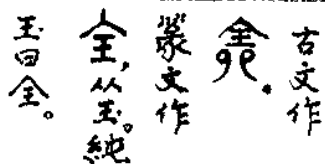 古文作
𠓴.
篆文作
全,从玉。純
玉曰全。